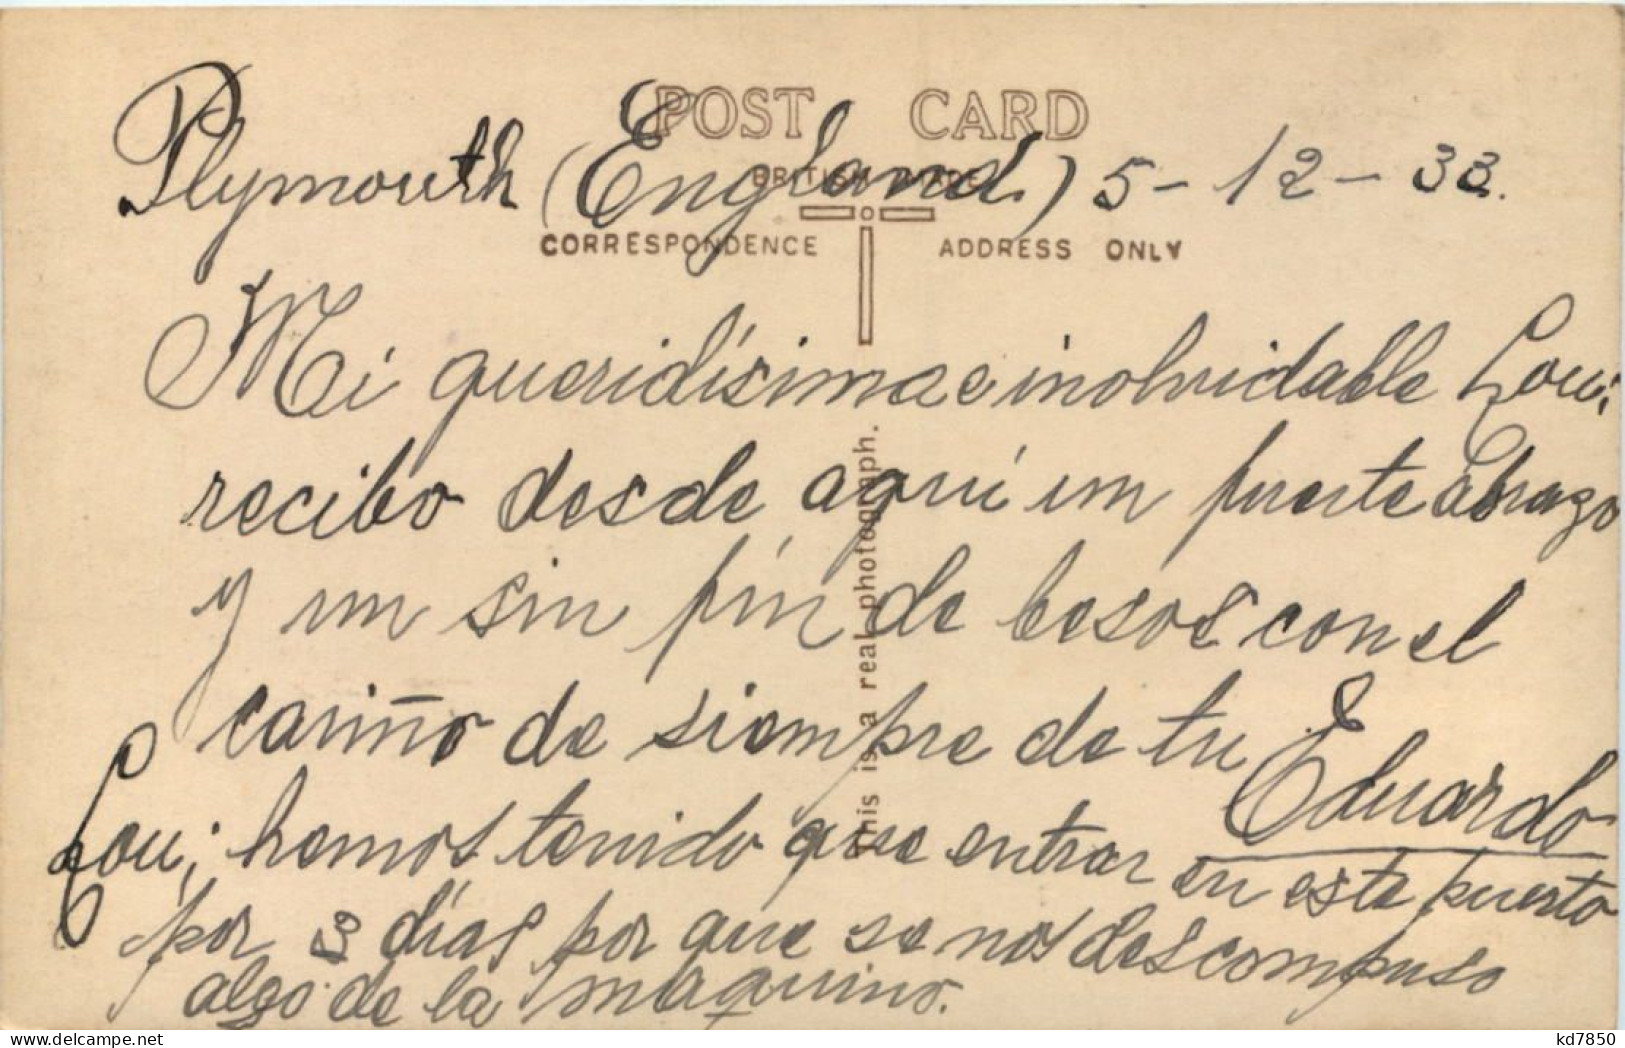 POST CARD
Plymouth (England) 5-12-33.
BRITISH MADE
CORRESPONDENCE ADDRESS ONLY
Mi queridísima e inolvidable Loui;
recibo desde aqui un fuerte abrazo
y un sin fín de besos con el
cariño de siempre de tu
Eduardo
Loui; hemos tenido que entrar en este puerto
por 3 días por que se nos descompuso
algo de la maquina.
This is a real photograph.
kd7850